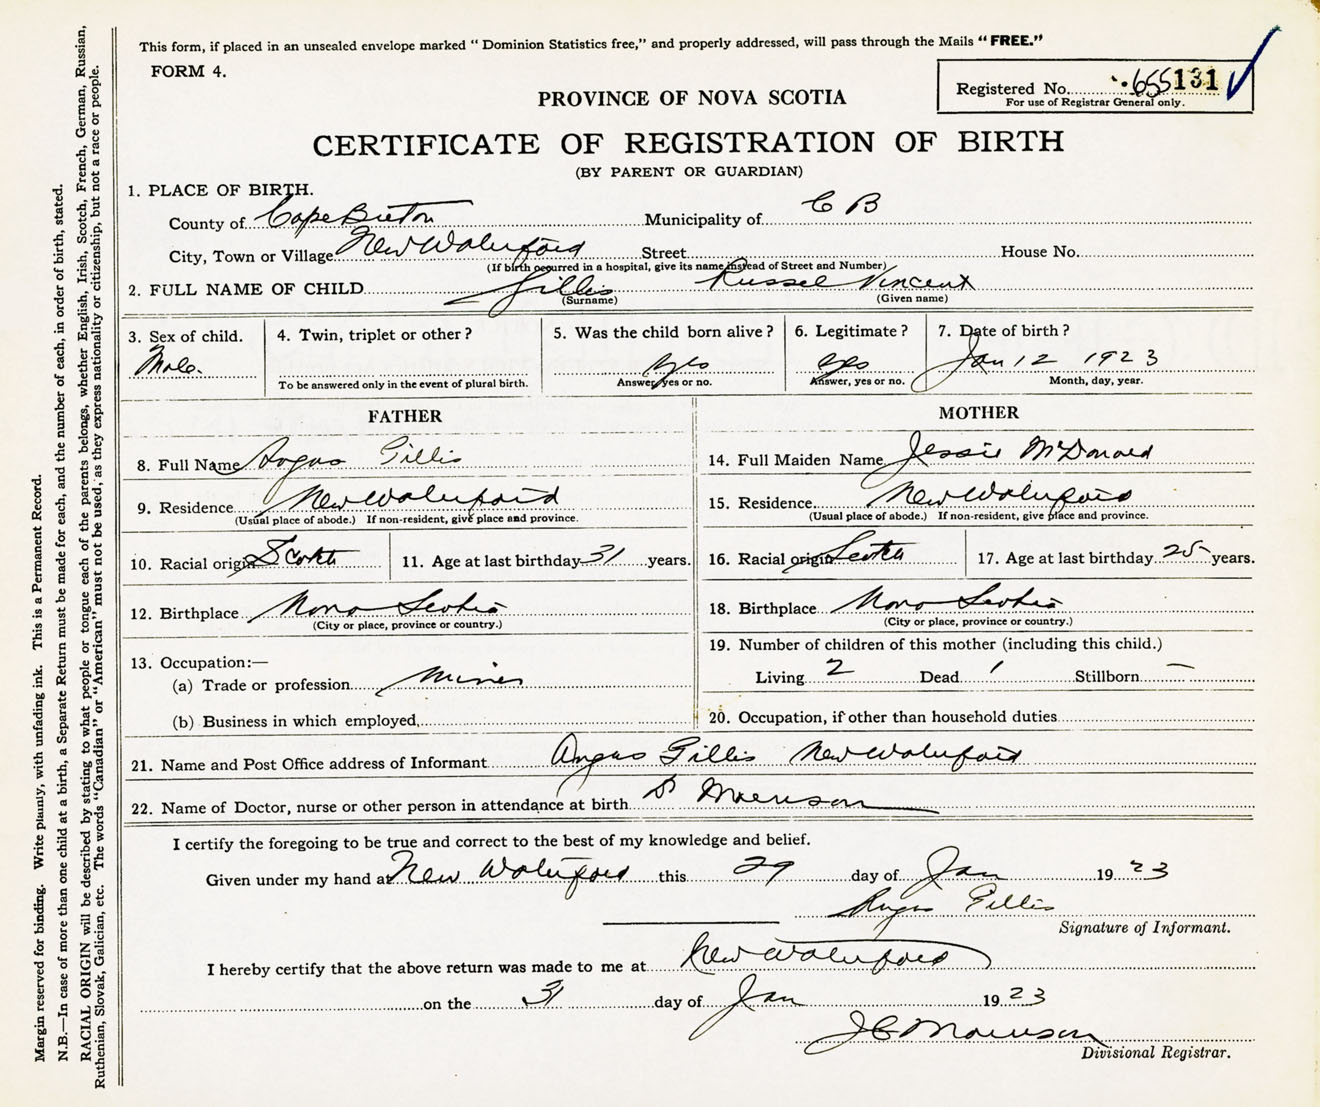 This form, if placed in an unsealed envelope marked “ Dominion Statistics free,” and properly addressed, will pass through the Mails “ FREE.”
FORM 4.
Registered No. 655131
For use of Registrar General only.
PROVINCE OF NOVA SCOTIA
CERTIFICATE OF REGISTRATION OF BIRTH
(BY PARENT OR GUARDIAN)
1. PLACE OF BIRTH.
County of Cape Breton Municipality of C B
City, Town or Village New Waterford Street House No.
(If birth occurred in a hospital, give its name instead of Street and Number)
2. FULL NAME OF CHILD Gillis Russel Vincent
(Surname) (Given name)
3. Sex of child. 4. Twin, triplet or other ? 5. Was the child born alive ? 6. Legitimate ? 7. Date of birth ?
Male. yes yes Jan 12 1923
To be answered only in the event of plural birth. Answer, yes or no. Answer, yes or no. Month, day, year.
FATHER MOTHER
8. Full Name Angus Gillis 14. Full Maiden Name Jessie McDonald
9. Residence New Waterford 15. Residence New Waterford
(Usual place of abode.) If non-resident, give place and province. (Usual place of abode.) If non-resident, give place and province.
10. Racial origin Scotch 11. Age at last birthday 31 years. 16. Racial origin Scotch 17. Age at last birthday 25 years.
12. Birthplace Nova Scotia 18. Birthplace Nova Scotia
(City or place, province or country.) (City or place, province or country.)
13. Occupation:— 19. Number of children of this mother (including this child.)
(a) Trade or profession miner Living 2 Dead 1 Stillborn —
(b) Business in which employed, 20. Occupation, if other than household duties
21. Name and Post Office address of Informant Angus Gillis New Waterford
22. Name of Doctor, nurse or other person in attendance at birth Dr Morrison
I certify the foregoing to be true and correct to the best of my knowledge and belief.
Given under my hand at New Waterford this 29 day of Jan 19 23
Angus Gillis
Signature of Informant.
I hereby certify that the above return was made to me at New Waterford
on the 31 day of Jan 19 23
J C Morrison
Divisional Registrar.
Margin reserved for binding. Write plainly, with unfading ink. This is a Permanent Record.
N.B.—In case of more than one child at a birth, a Separate Return must be made for each, and the number of each, in order of birth, stated.
RACIAL ORIGIN will be described by stating to what people or tongue each of the parents belongs, whether English, Irish, Scotch, French, German, Russian,
Ruthenian, Slovak, Galician, etc. The words “Canadian” or “American” must not be used, as they express nationality or citizenship, but not a race or people.